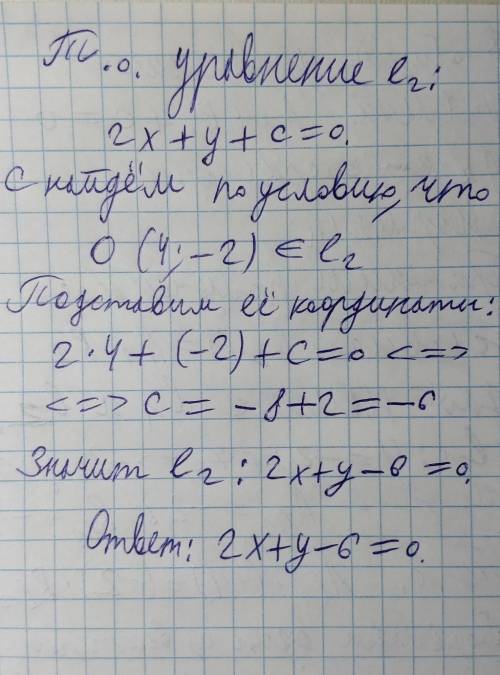 Т.о. уравнение l₂:
2x + y + c = 0.
C найдём по условию, что
O (4; -2) ∈ l₂
Подставим её координаты:
2·4 + (-2) + C = 0 <=>
<=> C = -8+2 = -6
Значит l₂: 2x+y-6 = 0.
Ответ: 2x+y-6 = 0.